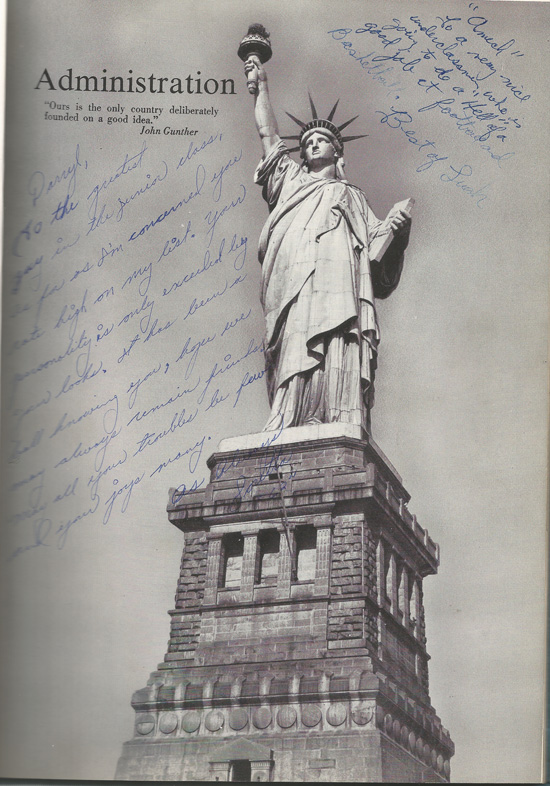 Administration
"Ours is the only country deliberately
founded on a good idea."
John Gunther
"Amech"
to a very nice
underclassman, who is
going to do a Hell of a
good job at football and
Basketball.
Best of Luck
Darryl,
To the greatest
guy in the junior class,
as far as I'm concerned you
rate high on my list. Your
personality is only exceeded by
your looks. It has been a
ball knowing you, hope we
may always remain friends,
may all your troubles be few
and your joys many.
as always